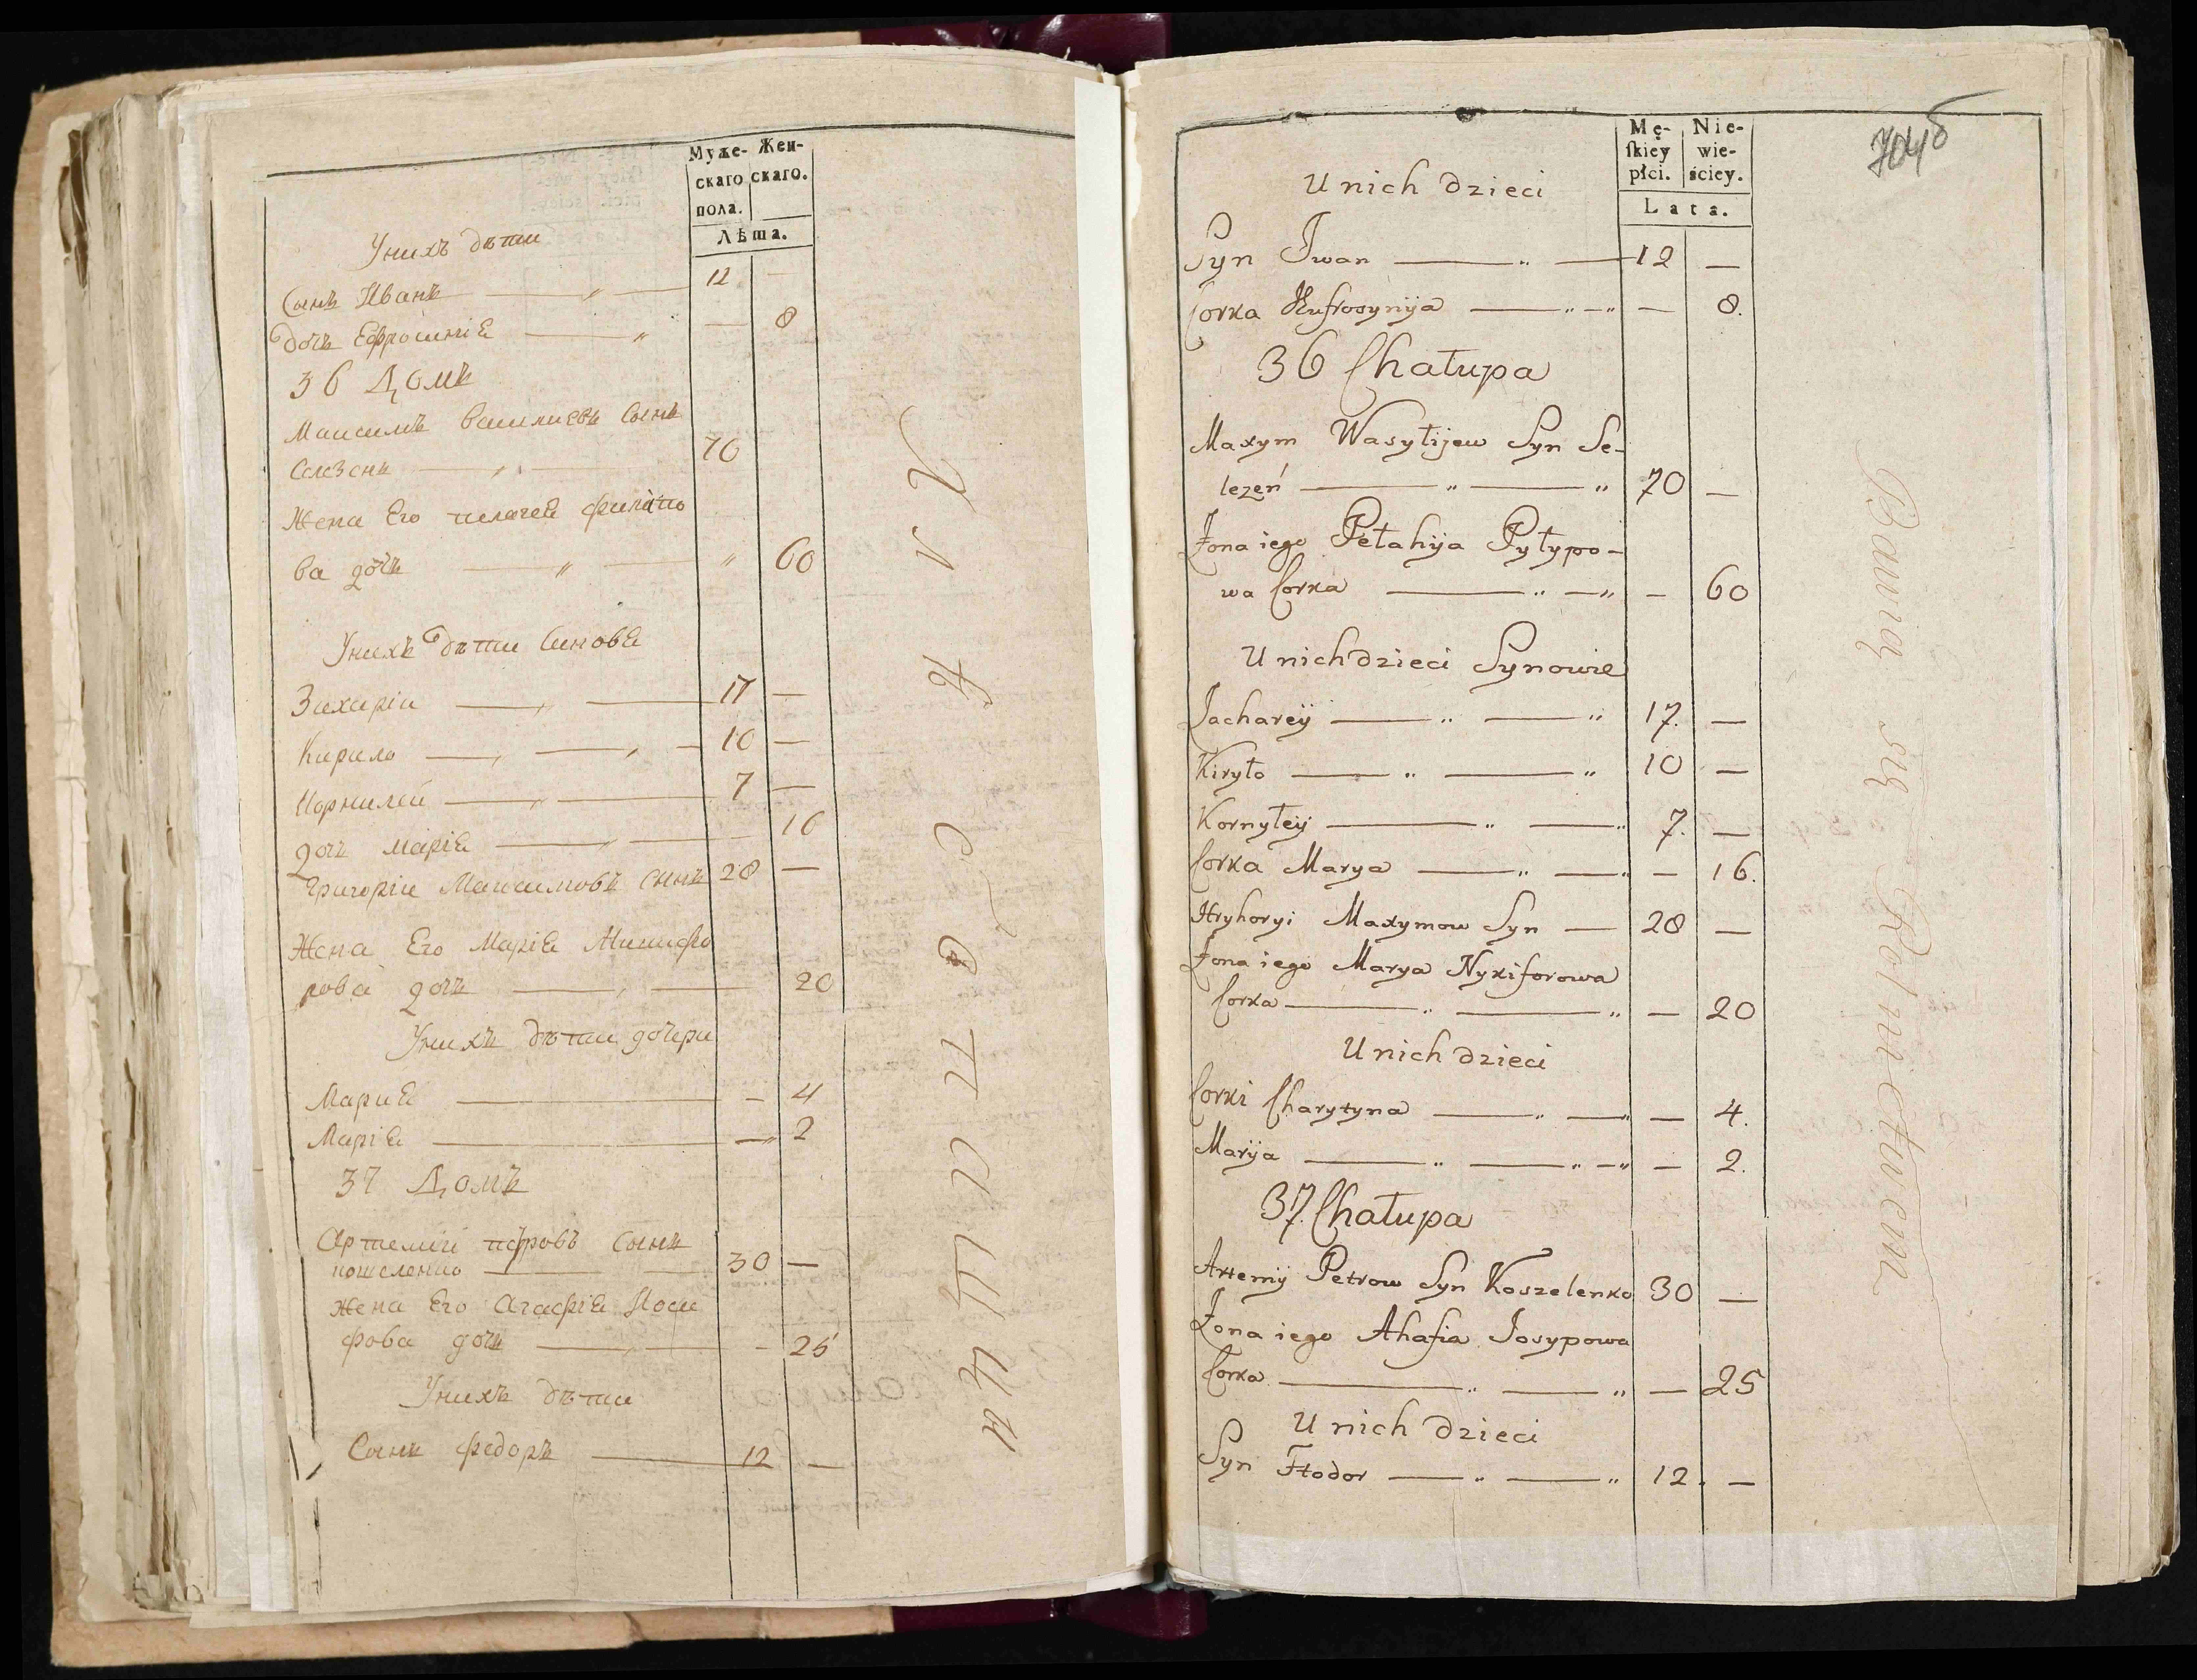 Муже-
скаго
пола.
Жен-
скаго.
Лѣта.
Унихъ дѣти
Сынъ Иванъ 12 —
дочь Ефросиніѣ — 8
36 Домъ
Максимъ Василиевъ Сынъ
Селезень 70
Жена Его пелагеѣ филипо
ва дочь " 60
Унихъ дѣти Синовѣ
Захаріи 17 —
Кирило 10 —
Корнилей 7 —
дочь маріѣ — 16
Григоріи Максимовъ Сынъ 28 —
Жена Его Маріѣ Никифо
рова дочь 20
Унихъ дѣти дочери
Мариѣ — 4
Маріѣ — 2
37 Домъ
Артемій петровъ Сынъ
кошеленко 30 —
жена Его Агафіѣ Иоси
фова дочь — 25
Унихъ дѣти
Сынъ федоръ 12 —
704б
Mę-
ſkiey
płci.
Nie-
wie-
ściey.
Lata.
U nich dzieci
Syn Iwan 12 —
Corka Heufrosynija — 8.
36 Chałupa
Maxym Wasylijew Syn Se-
lezeń 70 —
Żona iego Pełahija Pyłypo-
wa Corka — 60
U nich dzieci Synowie
Zachareÿ 17. —
Kiryło 10 —
Kornyłeÿ 7. —
Corka Marya — 16.
Hryhoryi Maxymow Syn — 28 —
Żona iego Marya Nykiforowa
Corka — 20
U nich dzieci
Corki Charytyna — 4.
Marÿa — 2.
37. Chałupa
Artemij Petrow Syn Koszelenko 30 —
Żona iego Ahafia Josypowa
Corka — 25
U nich dzieci
Syn Fłodor 12. —
Bawią się Rolnictwem